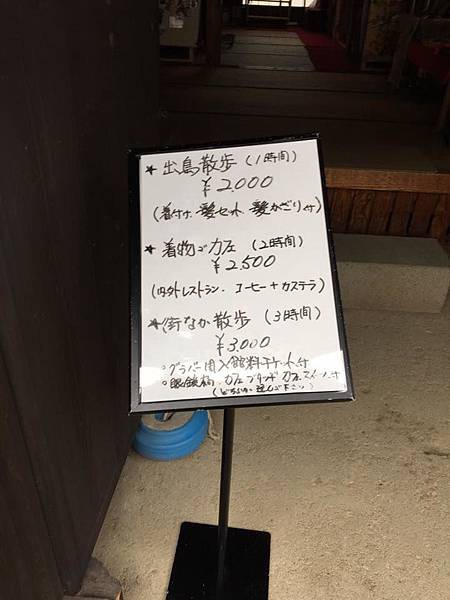 ★出島散歩(1時間)
￥2,000
(着付け、髪セット、髪かざり付)
★着物でカフェ(2時間)
￥2,500
(内外レストラン、コーヒー+カステラ)
★街なか散歩(3時間)
￥3,000
○グラバー園入館料チケット付
○眼鏡橋、カフェブリッヂ カフェスイーツ付
(どちらか選んで下さい)